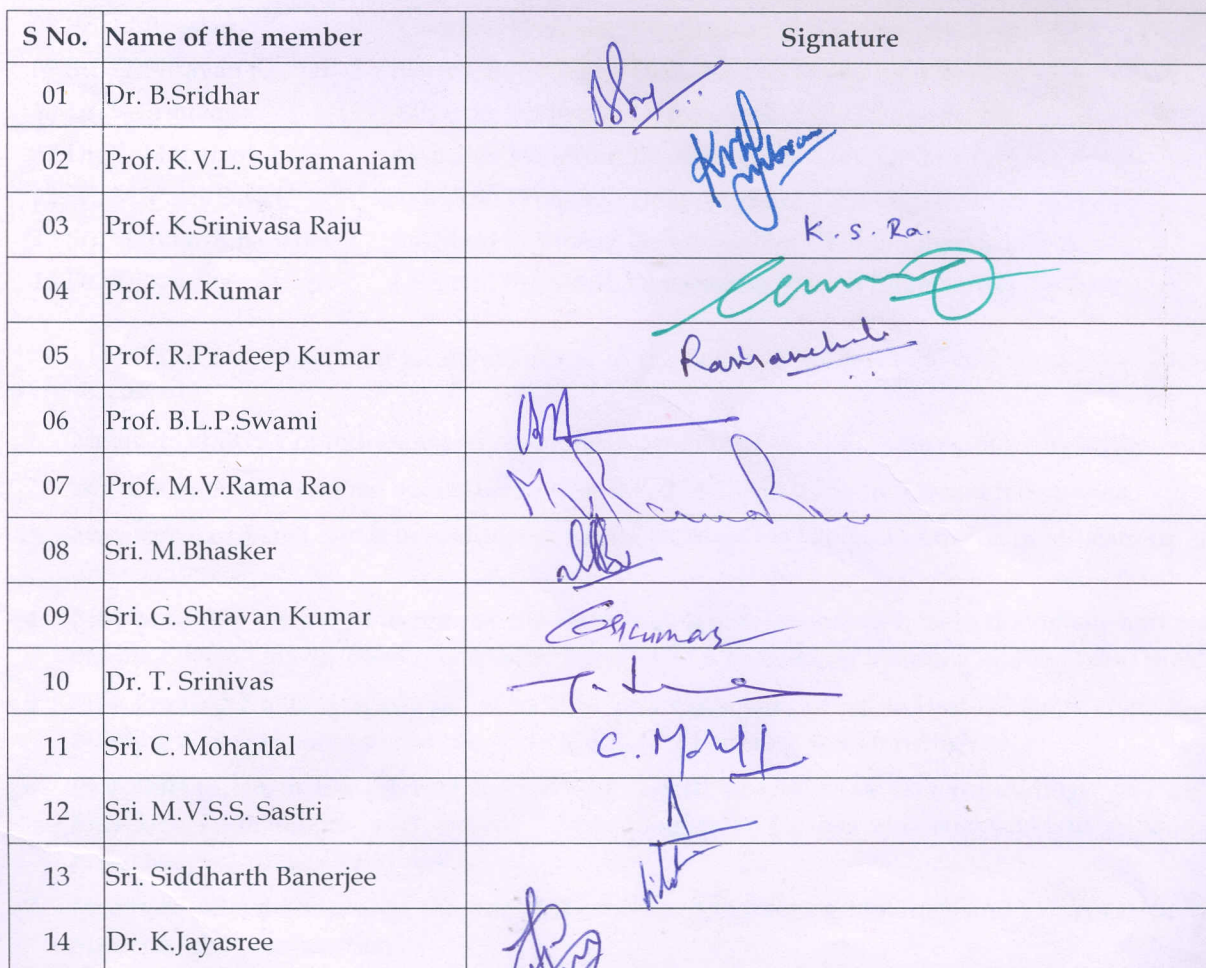 S No. Name of the member Signature
01 Dr. B.Sridhar
02 Prof. K.V.L. Subramaniam
03 Prof. K.Srinivasa Raju K. S. Ra.
04 Prof. M.Kumar
05 Prof. R.Pradeep Kumar
06 Prof. B.L.P.Swami
07 Prof. M.V.Rama Rao M.V.Rama Rao
08 Sri. M.Bhasker
09 Sri. G. Shravan Kumar GSKumar
10 Dr. T. Srinivas
11 Sri. C. Mohanlal
12 Sri. M.V.S.S. Sastri
13 Sri. Siddharth Banerjee
14 Dr. K.Jayasree